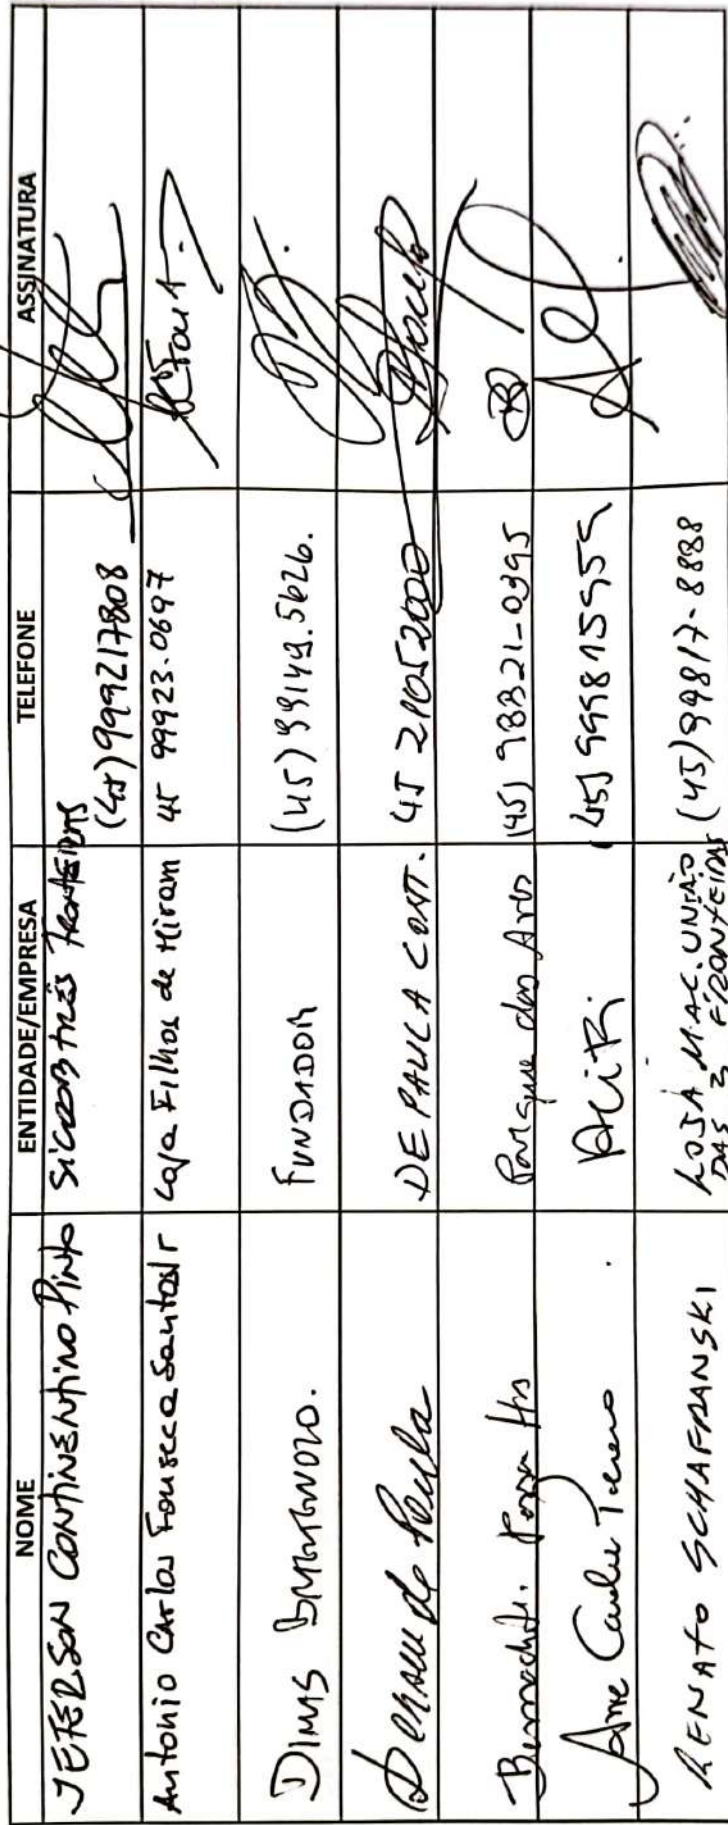 NOME ENTIDADE/EMPRESA TELEFONE ASSINATURA
JEFERSON CONTINENTINO PINTO SICOOB TRÊS FRONTEIRAS (45) 999217808
Antonio Carlos Fonseca Santos Jr Loja Filhos de Hiram 45 99923.0697
DIMAS FUNDADOR (45) 99149.5626.
de Paula DE PAULA CONT. 45 21052000
Parque das Aves (45) 98821-0395
Ane ACIFI. (45) 999815959
RENATO SCHAFRANSKI LOJA MAC. UNIÃO DAS 3 FRONTEIRAS (45) 99817-8888